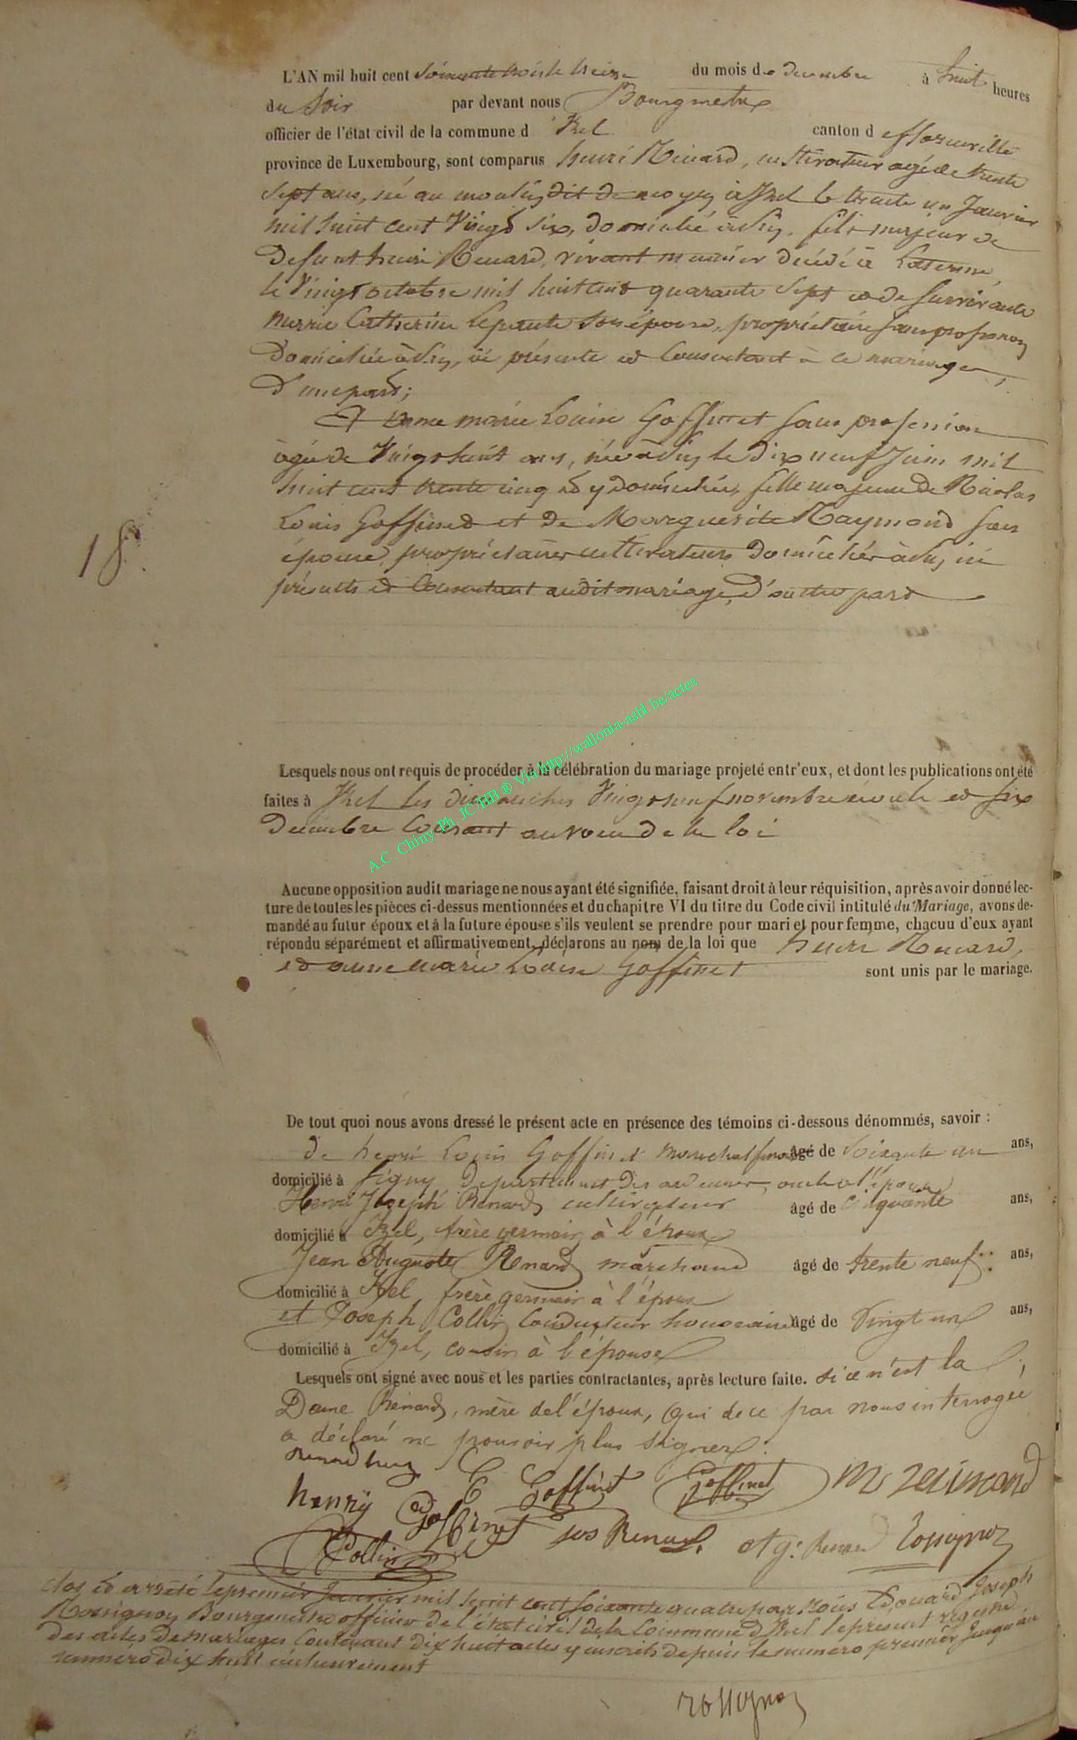 L'AN mil huit cent soixante trois le treize du mois de decembre à huit heures
du soir par devant nous Bourgmestre
officier de l'état civil de la commune d'Izel canton de florenville
province de Luxembourg, sont comparus henri Renard, cultivateur agé de trente
sept ans, né au moulin dit de moyen à Izel le trente un Janvier
mil huit cent Vingt six, domicilié à , fils majeur de
Defunt henri Renard, vivant meunier décédé à
le Vingt octobre mil huit cent quarante sept et de survivante
Marie Catherine Lepante son épouse, propriétaire sans profession
domiciliée à , ici présente et consentant à ce mariage,
D'une part;
Et anna marie Louise Goffinet sans profession
agée de Vingt huit ans, née à le dix neuf Juin mil
huit cent trente cinq et y domiciliée, fille majeure de Nicolas
Louis Goffinet et de Marguerite Raymond son
épouse, propriétaires cultivateurs domiciliés à , ici
présents et consentant audit mariage, d'autre part
18
Lesquels nous ont requis de procéder à la célébration du mariage projeté entr'eux, et dont les publications ont été
faites à Izel les dimanches Vingt neuf novembre et six
Decembre courant au voeu de la loi
A.C Chiny-Ph. JC HB ® Via http://wallonia-asbl.be/actes
Aucune opposition audit mariage ne nous ayant été signifiée, faisant droit à leur réquisition, après avoir donné lec-
ture de toutes les pièces ci-dessus mentionnées et du chapitre VI du titre du Code civil intitulé du Mariage, avons de-
mandé au futur époux et à la future épouse s'ils veulent se prendre pour mari et pour femme, chacun d'eux ayant
répondu séparément et affirmativement, déclarons au nom de la loi que henri Renard,
et anne marie Louise Goffinet sont unis par le mariage.
De tout quoi nous avons dressé le présent acte en présence des témoins ci-dessous dénommés, savoir :
de henri Louis Goffinet marechal ferrant âgé de Soixante un ans,
domicilié à Signy, departement des ardennes, oncle à l'épouse
Henri Joseph Renard, cultivateur âgé de cinquante ans,
domicilié à Izel, frère germain à l'époux
Jean Auguste Renard marchand âgé de trente neuf ans,
domicilié à Izel frère germain à l'époux
et Joseph Collin Conducteur honoraire âgé de Vingt un ans,
domicilié à Izel, cousin à l'épouse
Lesquels ont signé avec nous et les parties contractantes, après lecture faite. si ce n'est la
Dame Renard, mère de l'époux, qui de ce par nous interrogée
a déclaré ne pouvoir plus signer.
Renard henry
henry Goffinet E Goffinet Goffinet M reimond
Collin Jos Renard. Aug: Renard Rossignon
Clos et arrêté le premier Janvier mil huit cent soixante quatre par Nous Edouard Joseph
Rossignon Bourgmestre officier de l'état civil de la Commune d'Izel le present registre
des actes de mariages Contenant dix huit actes y inscrits depuis le numero premier jusqu'au
numero dix huit inclusivement
Rossignon